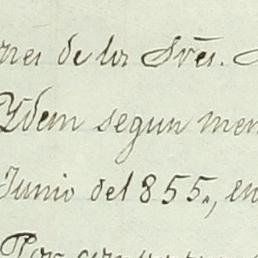 de los Sres.
Ydem segun men
Junio del 855., en
Por